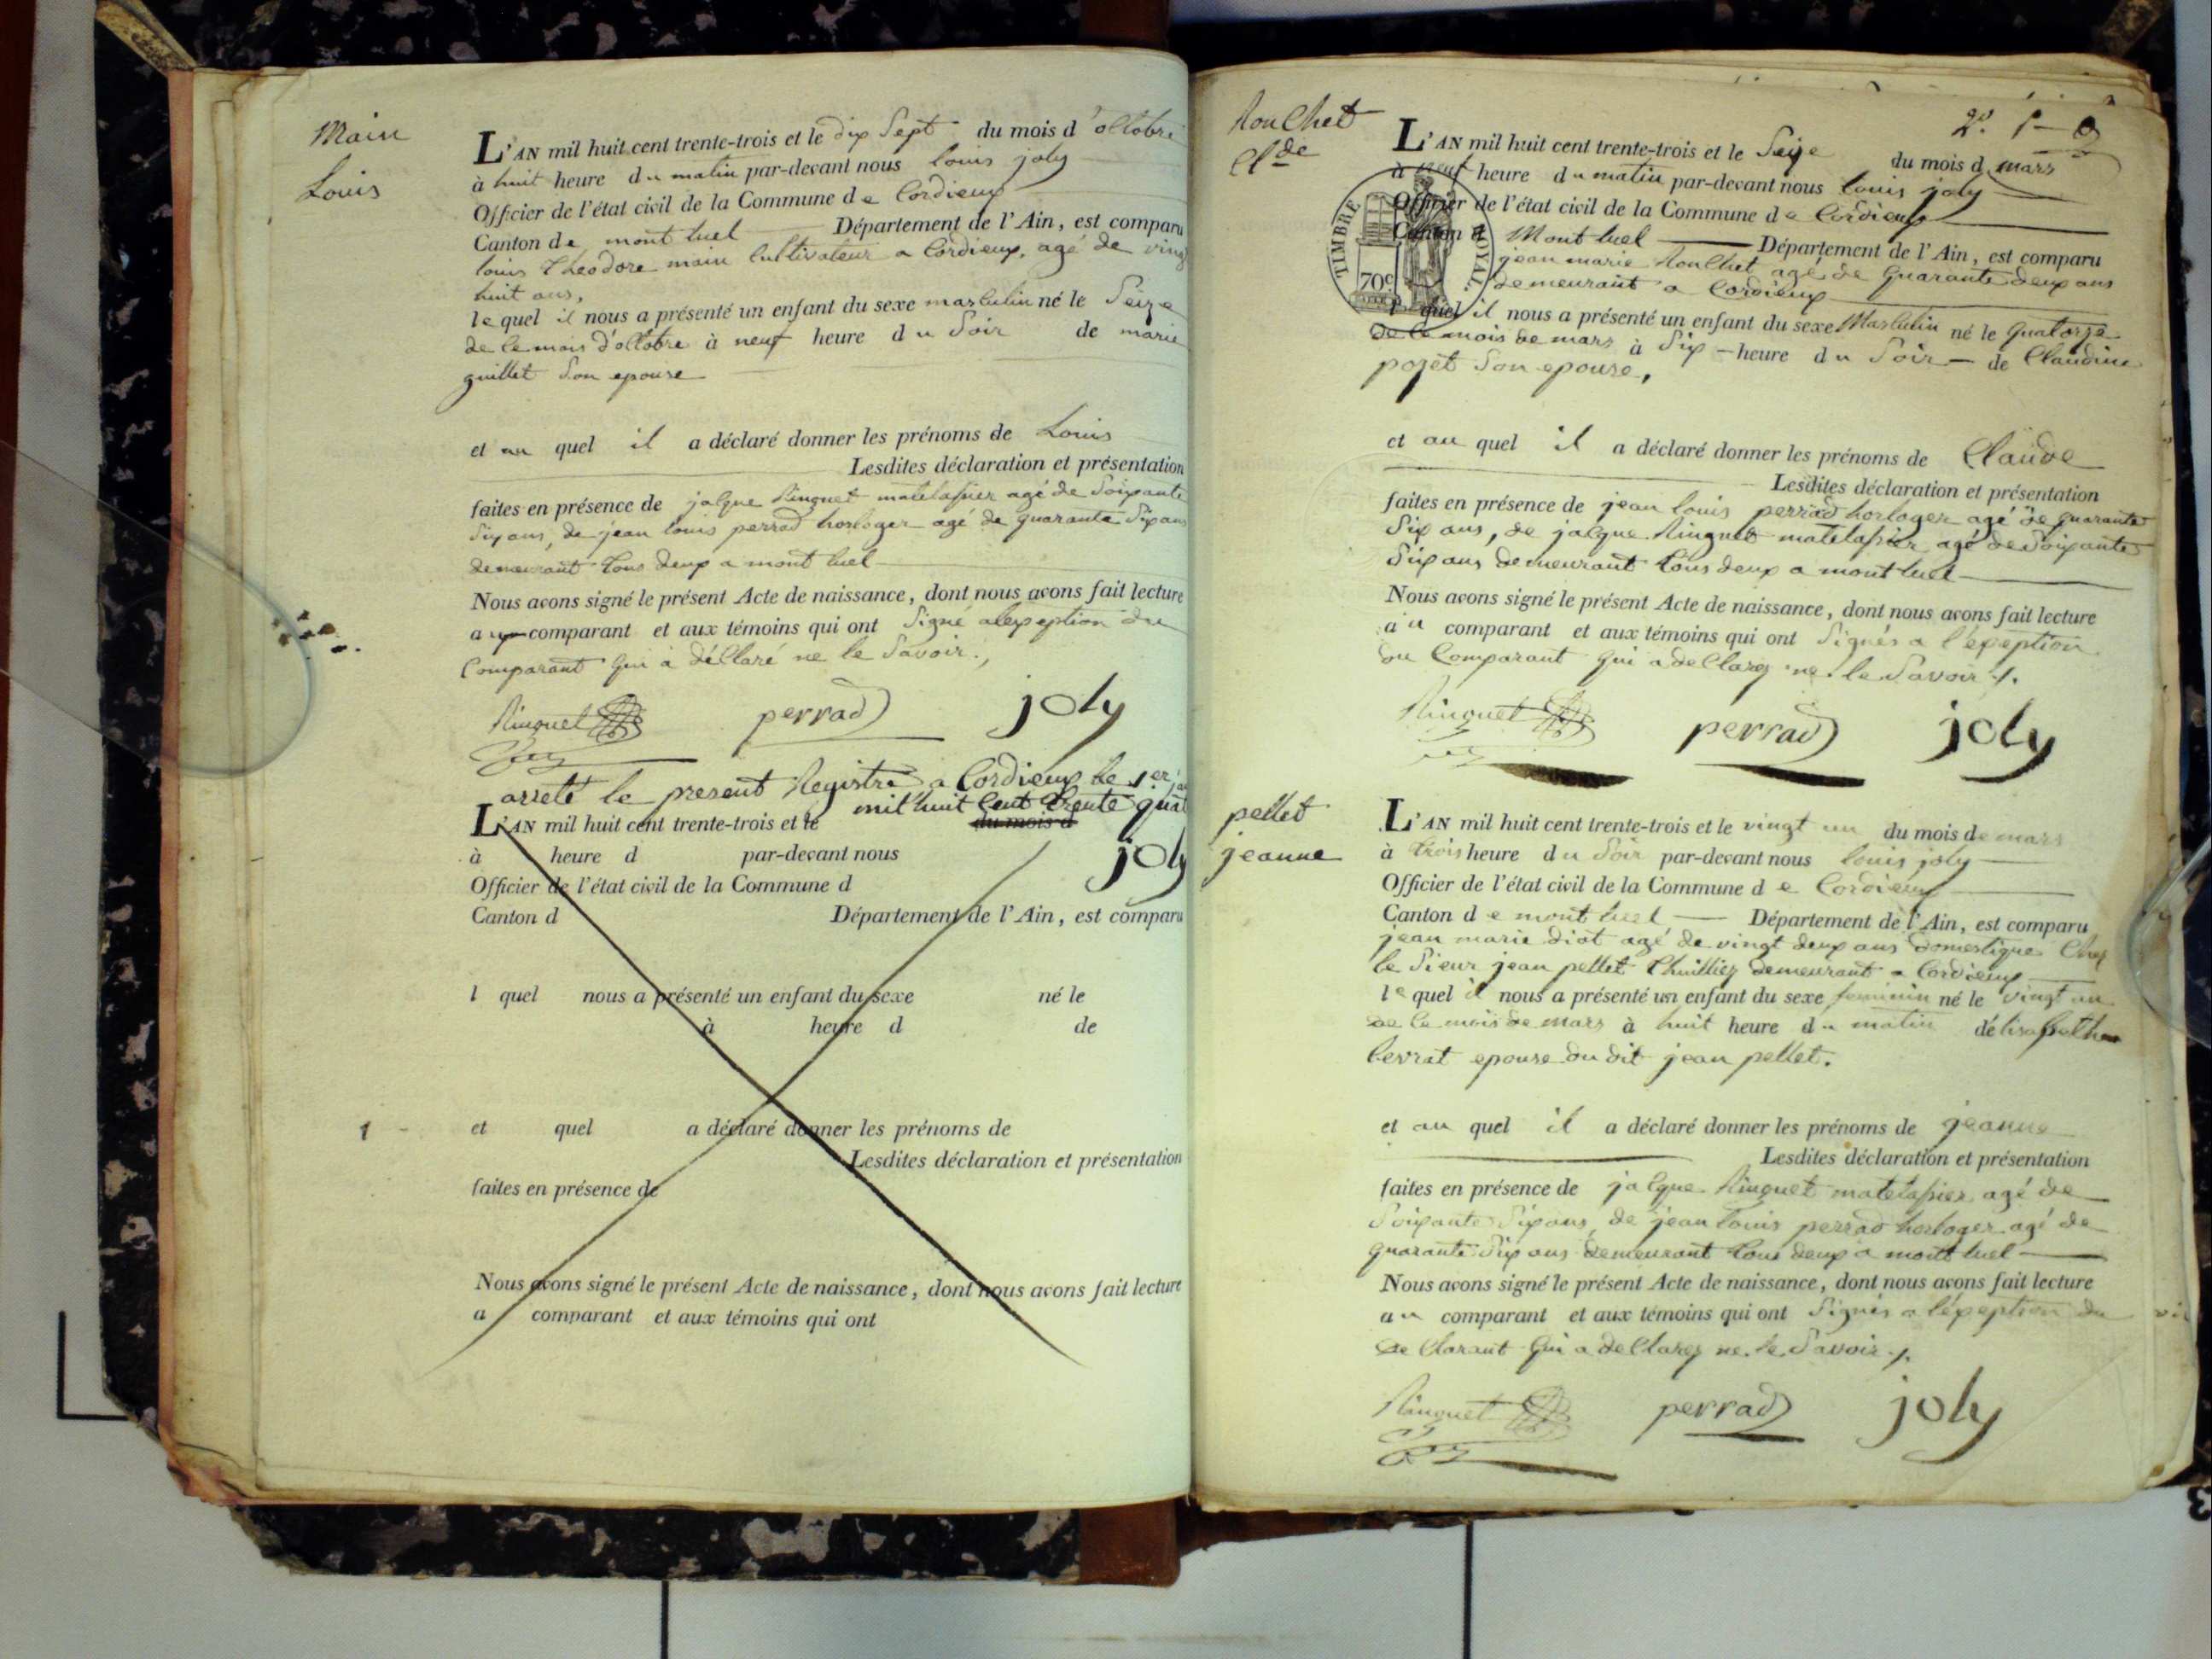 Main
Louis
L'AN mil huit cent trente-trois et le dix Sept du mois d'octobre
à huit heure du matin par-devant nous louis joly
Officier de l'état civil de la Commune de Cordieux
Canton de mont luel Département de l'Ain, est comparu
louis theodore main cultivateur a Cordieux, agé de vingt
huit ans,
lequel il nous a présenté un enfant du sexe masculin né le Seize
de ce mois d'octobre à neuf heure du Soir de marie
guillet Son epouse
et au quel il a déclaré donner les prénoms de Louis
Lesdites déclaration et présentation
faites en présence de jacque Ringuet matelassier agé de Soixante
Six ans, de jean louis perrad horloger agé de quarante Six ans
demeurant tous deux a mont luel
Nous avons signé le présent Acte de naissance, dont nous avons fait lecture
au comparant et aux témoins qui ont Signé a lexception du
Comparant qui a déclaré ne le Savoir.
Ringuet perrad joly
arreté le present Registre a Cordieux le 1er
mil huit cent trente quat
L'AN mil huit cent trente-trois et le du mois d
à heure d par-devant nous joly
Officier de l'état civil de la Commune d
Canton d Département de l'Ain, est comparu
l quel nous a présenté un enfant du sexe né le
à heure d de
1 et quel a déclaré donner les prénoms de
Lesdites déclaration et présentation
faites en présence de
Nous avons signé le présent Acte de naissance, dont nous avons fait lecture
a comparant et aux témoins qui ont
Rouchet
Clde
L'AN mil huit cent trente-trois et le Seize du mois d mars
à neuf heure du matin par-devant nous louis joly
Officier de l'état civil de la Commune de Cordieux
Canton d Mont luel Département de l'Ain, est comparu
TIMBRE ROYAL
70c
jean marie Rouchet agé de quarante deux ans
demeurant a Cordieux
l quel il nous a présenté un enfant du sexe Masculin né le quatorze
de ce mois de mars à Six heure du Soir de Claudine
pozet Son epouse,
et au quel il a déclaré donner les prénoms de Claude
Lesdites déclaration et présentation
faites en présence de jean louis perrad horloger agé de quarante
Six ans, de jacque Ringuet matelassier agé de Soixante
Six ans demeurant tous deux a mont luel
Nous avons signé le présent Acte de naissance, dont nous avons fait lecture
au comparant et aux témoins qui ont Signés a l'exeption
du Comparant qui a declarez ne le Savoir
Ringuet perrad joly
pellet
jeanne
L'AN mil huit cent trente-trois et le vingt un du mois de mars
à trois heure du Soir par-devant nous louis joly
Officier de l'état civil de la Commune de Cordieux
Canton de mont luel Département de l'Ain, est comparu
jean marie diot agé de vingt deux ans domestique Chez
le Sieur jean pellet thuillier demeurant a Cordieux
lequel il nous a présenté un enfant du sexe feminin né le vingt un
de ce mois de mars à huit heure du matin
epouse du dit jean pellet.
et au quel il a déclaré donner les prénoms de jeanne
Lesdites déclaration et présentation
faites en présence de jacque Ringuet matelassier agé de
Soixante Six ans, de jean louis perrad horloger agé de
quarante Six ans demeurant tous deux a mont luel
Nous avons signé le présent Acte de naissance, dont nous avons fait lecture
au comparant et aux témoins qui ont Signés a l'exeption du
declarant qui a declarez ne le Savoir
Ringuet perrad joly